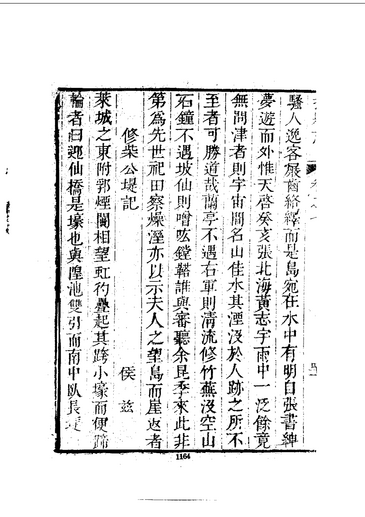 騷人逸客屐齒絡繹而是島宛在水中有明自張書紳
夢遊而外惟天啓癸亥張北海黃志宇雨中一泛餘竟
無問津者則宇宙間名山佳水其湮沒於人跡之所不
至者可勝道哉蘭亭不遇右軍則清流修竹蕪沒空山
石鐘不遇坡仙則噌吰鏜鞳誰與審聽余昆季來此非
第為先世祀田察燥溼亦以示夫人之望島而崖返者
修柴公堤記
侯 玆
萊城之東附郭煙闤相望虹彴疊起其跨小壕而便蹄
輪者曰迎仙橋是壕也與隍池雙引而南中臥長堤
1164